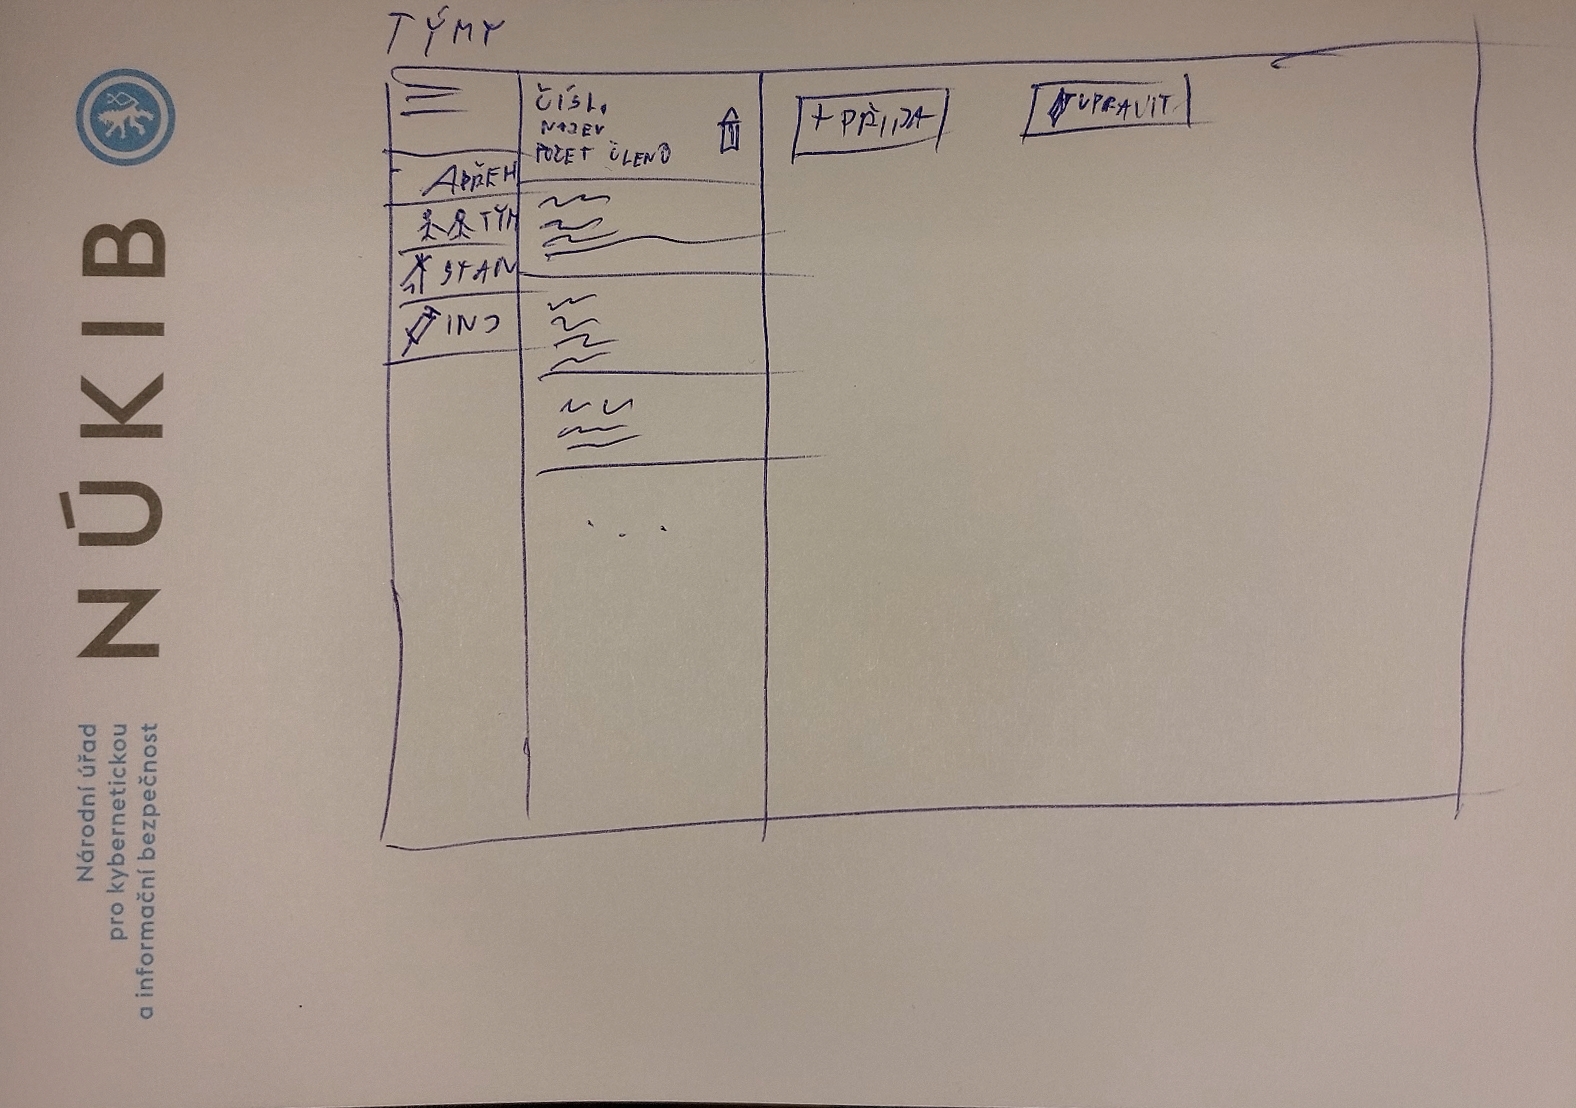 NÚKIB
Národní úřad
pro kybernetickou
a informační bezpečnost
TÝMY
PŘEH
TÝM
STAN
ČÍSL.
NÁZEV
POČET ČLENŮ
+ PŘIDA
UPRAVIT